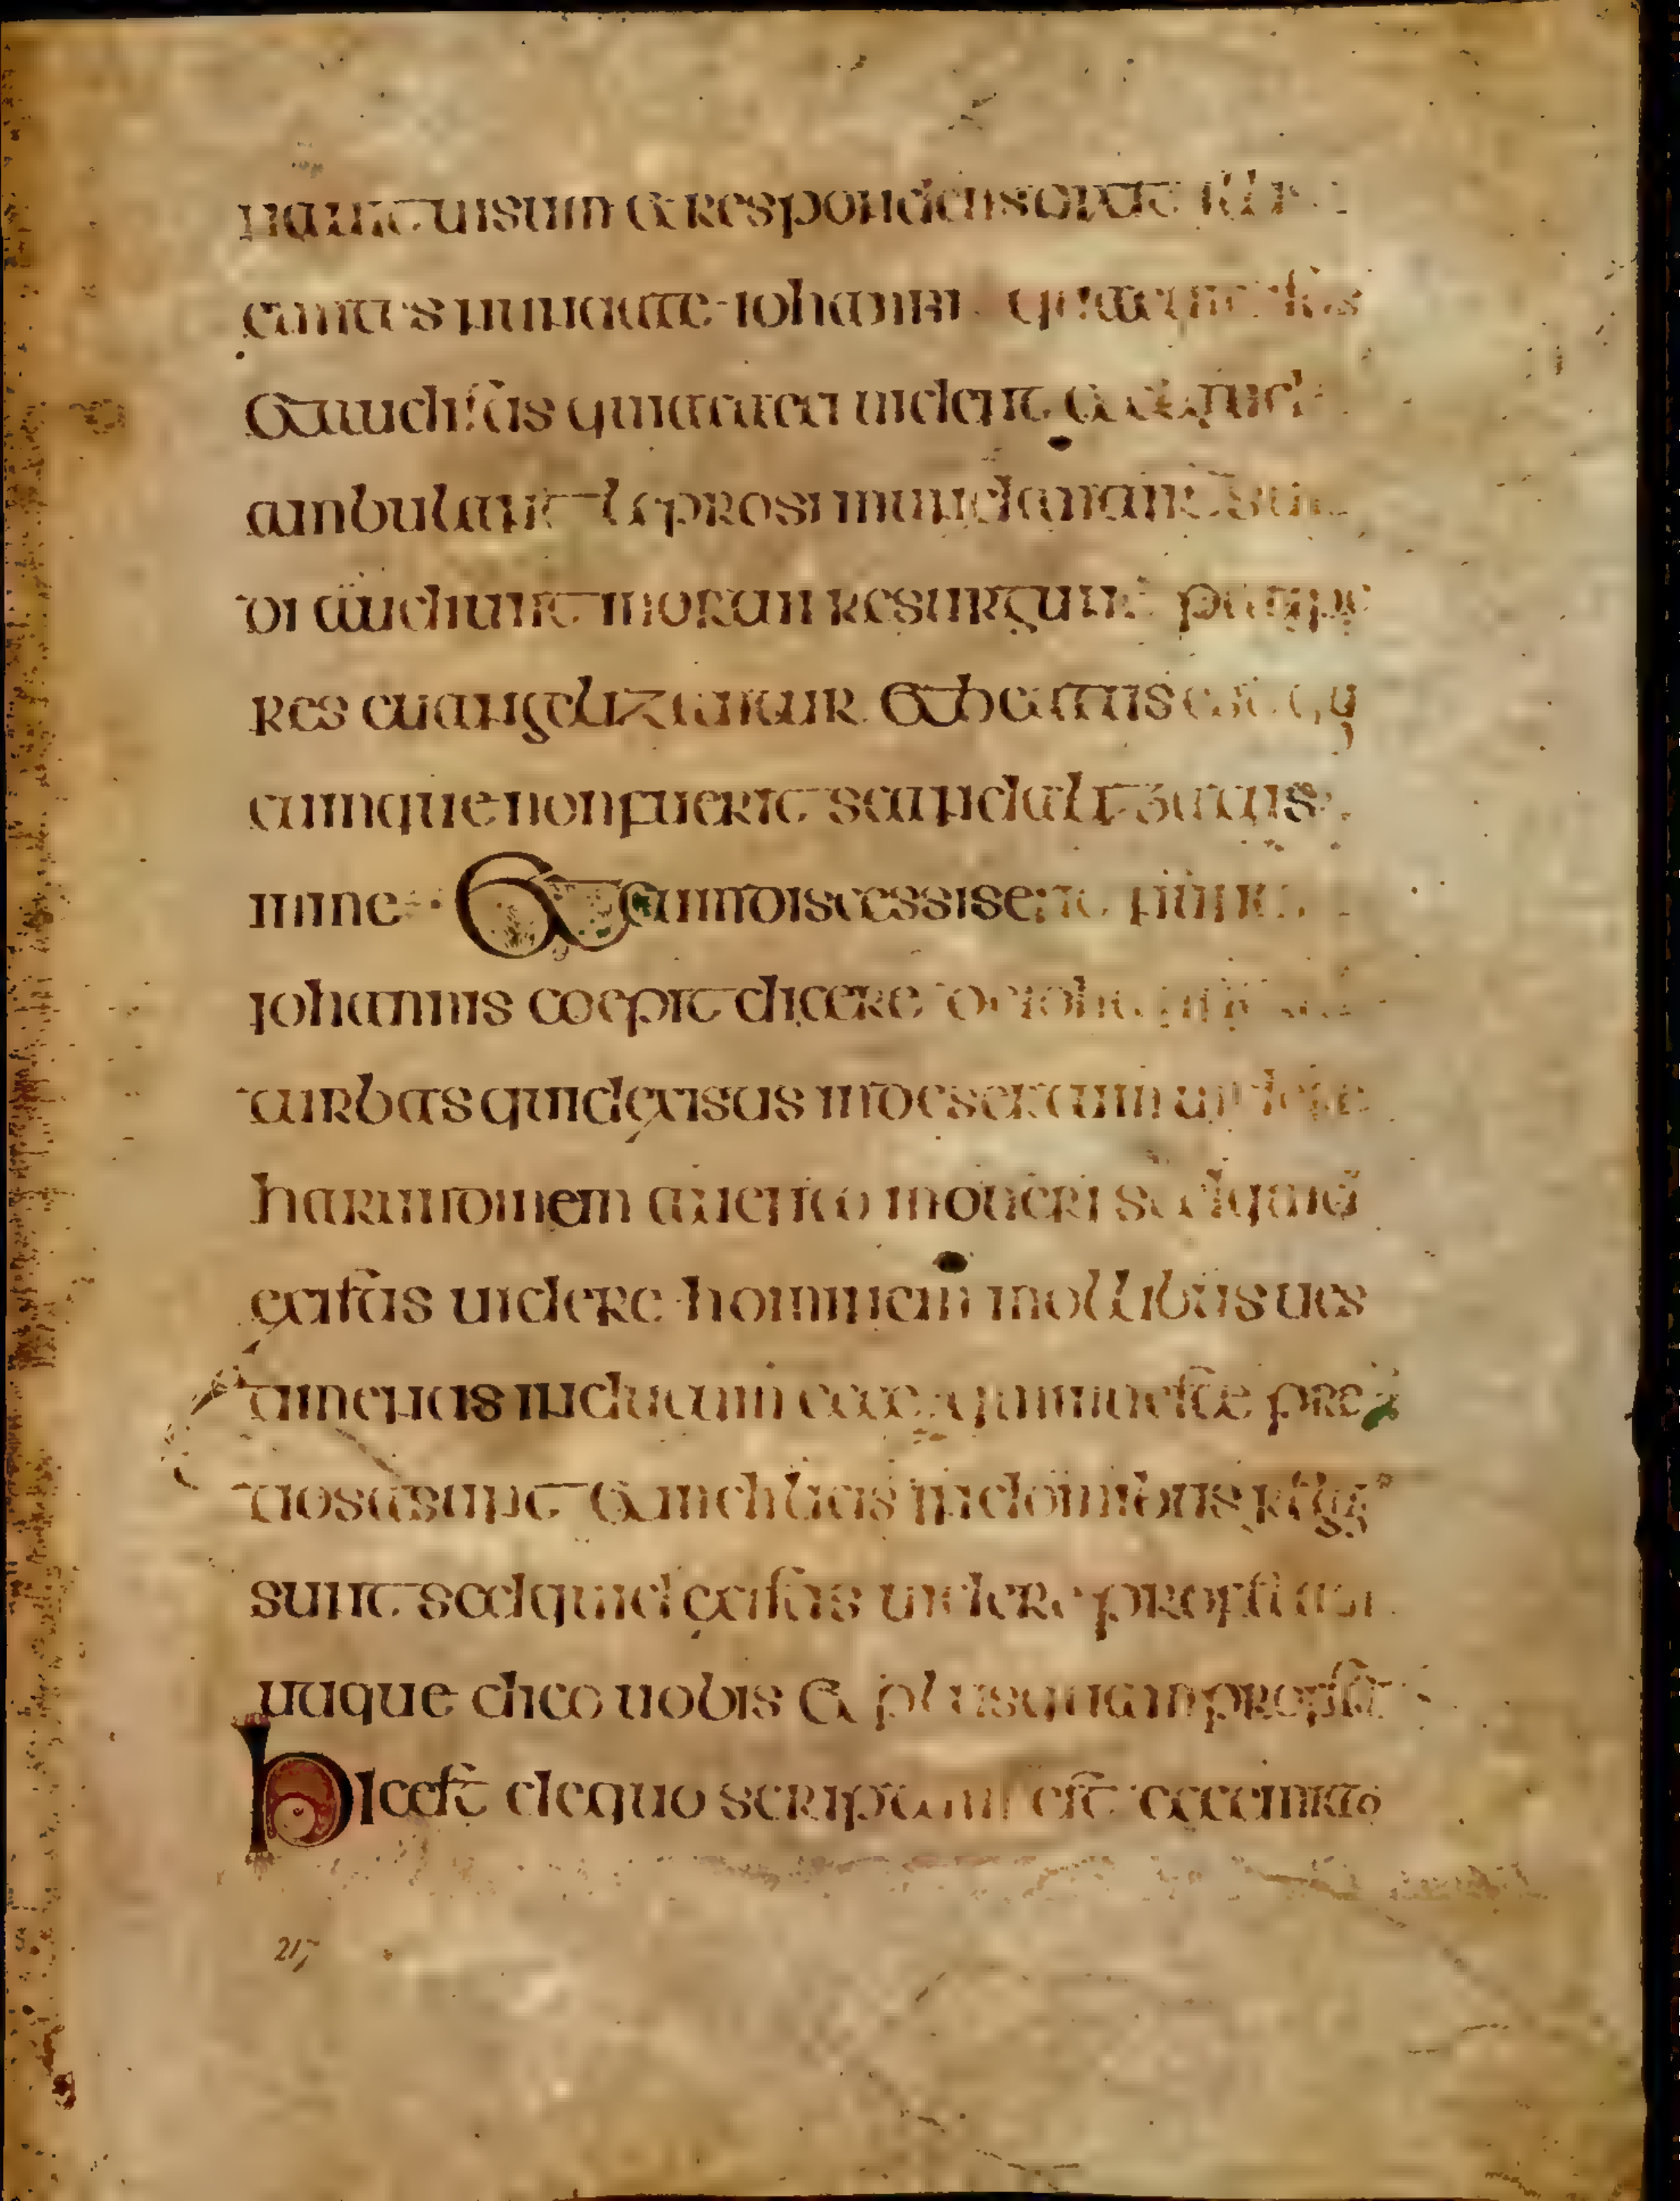 nauit uisum et respondens dixit illis
euntes nuntiate iohanni quae uidistis
et audistis quia caeci uident et claudi
ambulant leprosi mundantur sur
di audiunt mortui resurgunt paupe
res euangelizantur et beatus est qui
cumque non fuerit scandalizatus
in me Et cum discessisent nuntii
iohannis coepit dicere de iohanne ad
turbas quid existis in desertum uidere
harundinem a uento moueri sed quid
existis uidere hominem mollibus ues
timentis indutum ecce qui in ueste prei
tiosa sunt et in dilicis in domibus regū
sunt sed quid existis uidere profetam
utique dico uobis et plus quam profetā
hic est de quo scriptum est ecce mitto
217